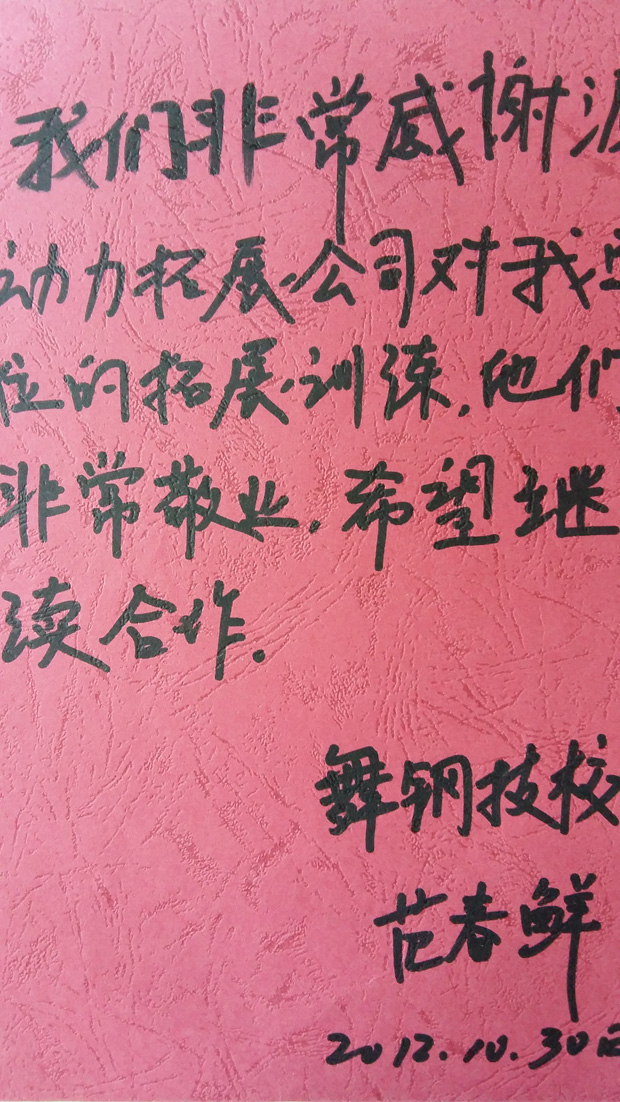 我们非常感谢源
动力拓展公司对我单
位的拓展训练,他们
非常敬业.希望继
续合作.
舞钢技校
范春鲜
2012.10.30日